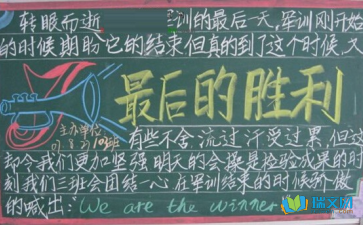 转眼而逝 军训的最后一天,军训刚开始
的时候期盼它的结束但真的到了这个时候,又
最后的胜利
主办单位
有些不舍,流过汗受过累,但这
却令我们更加坚强明天的会操是检验成果的时
刻我们三班会团结一心在军训结束的时候骄傲
的喊出:We are the winner
瑞文网